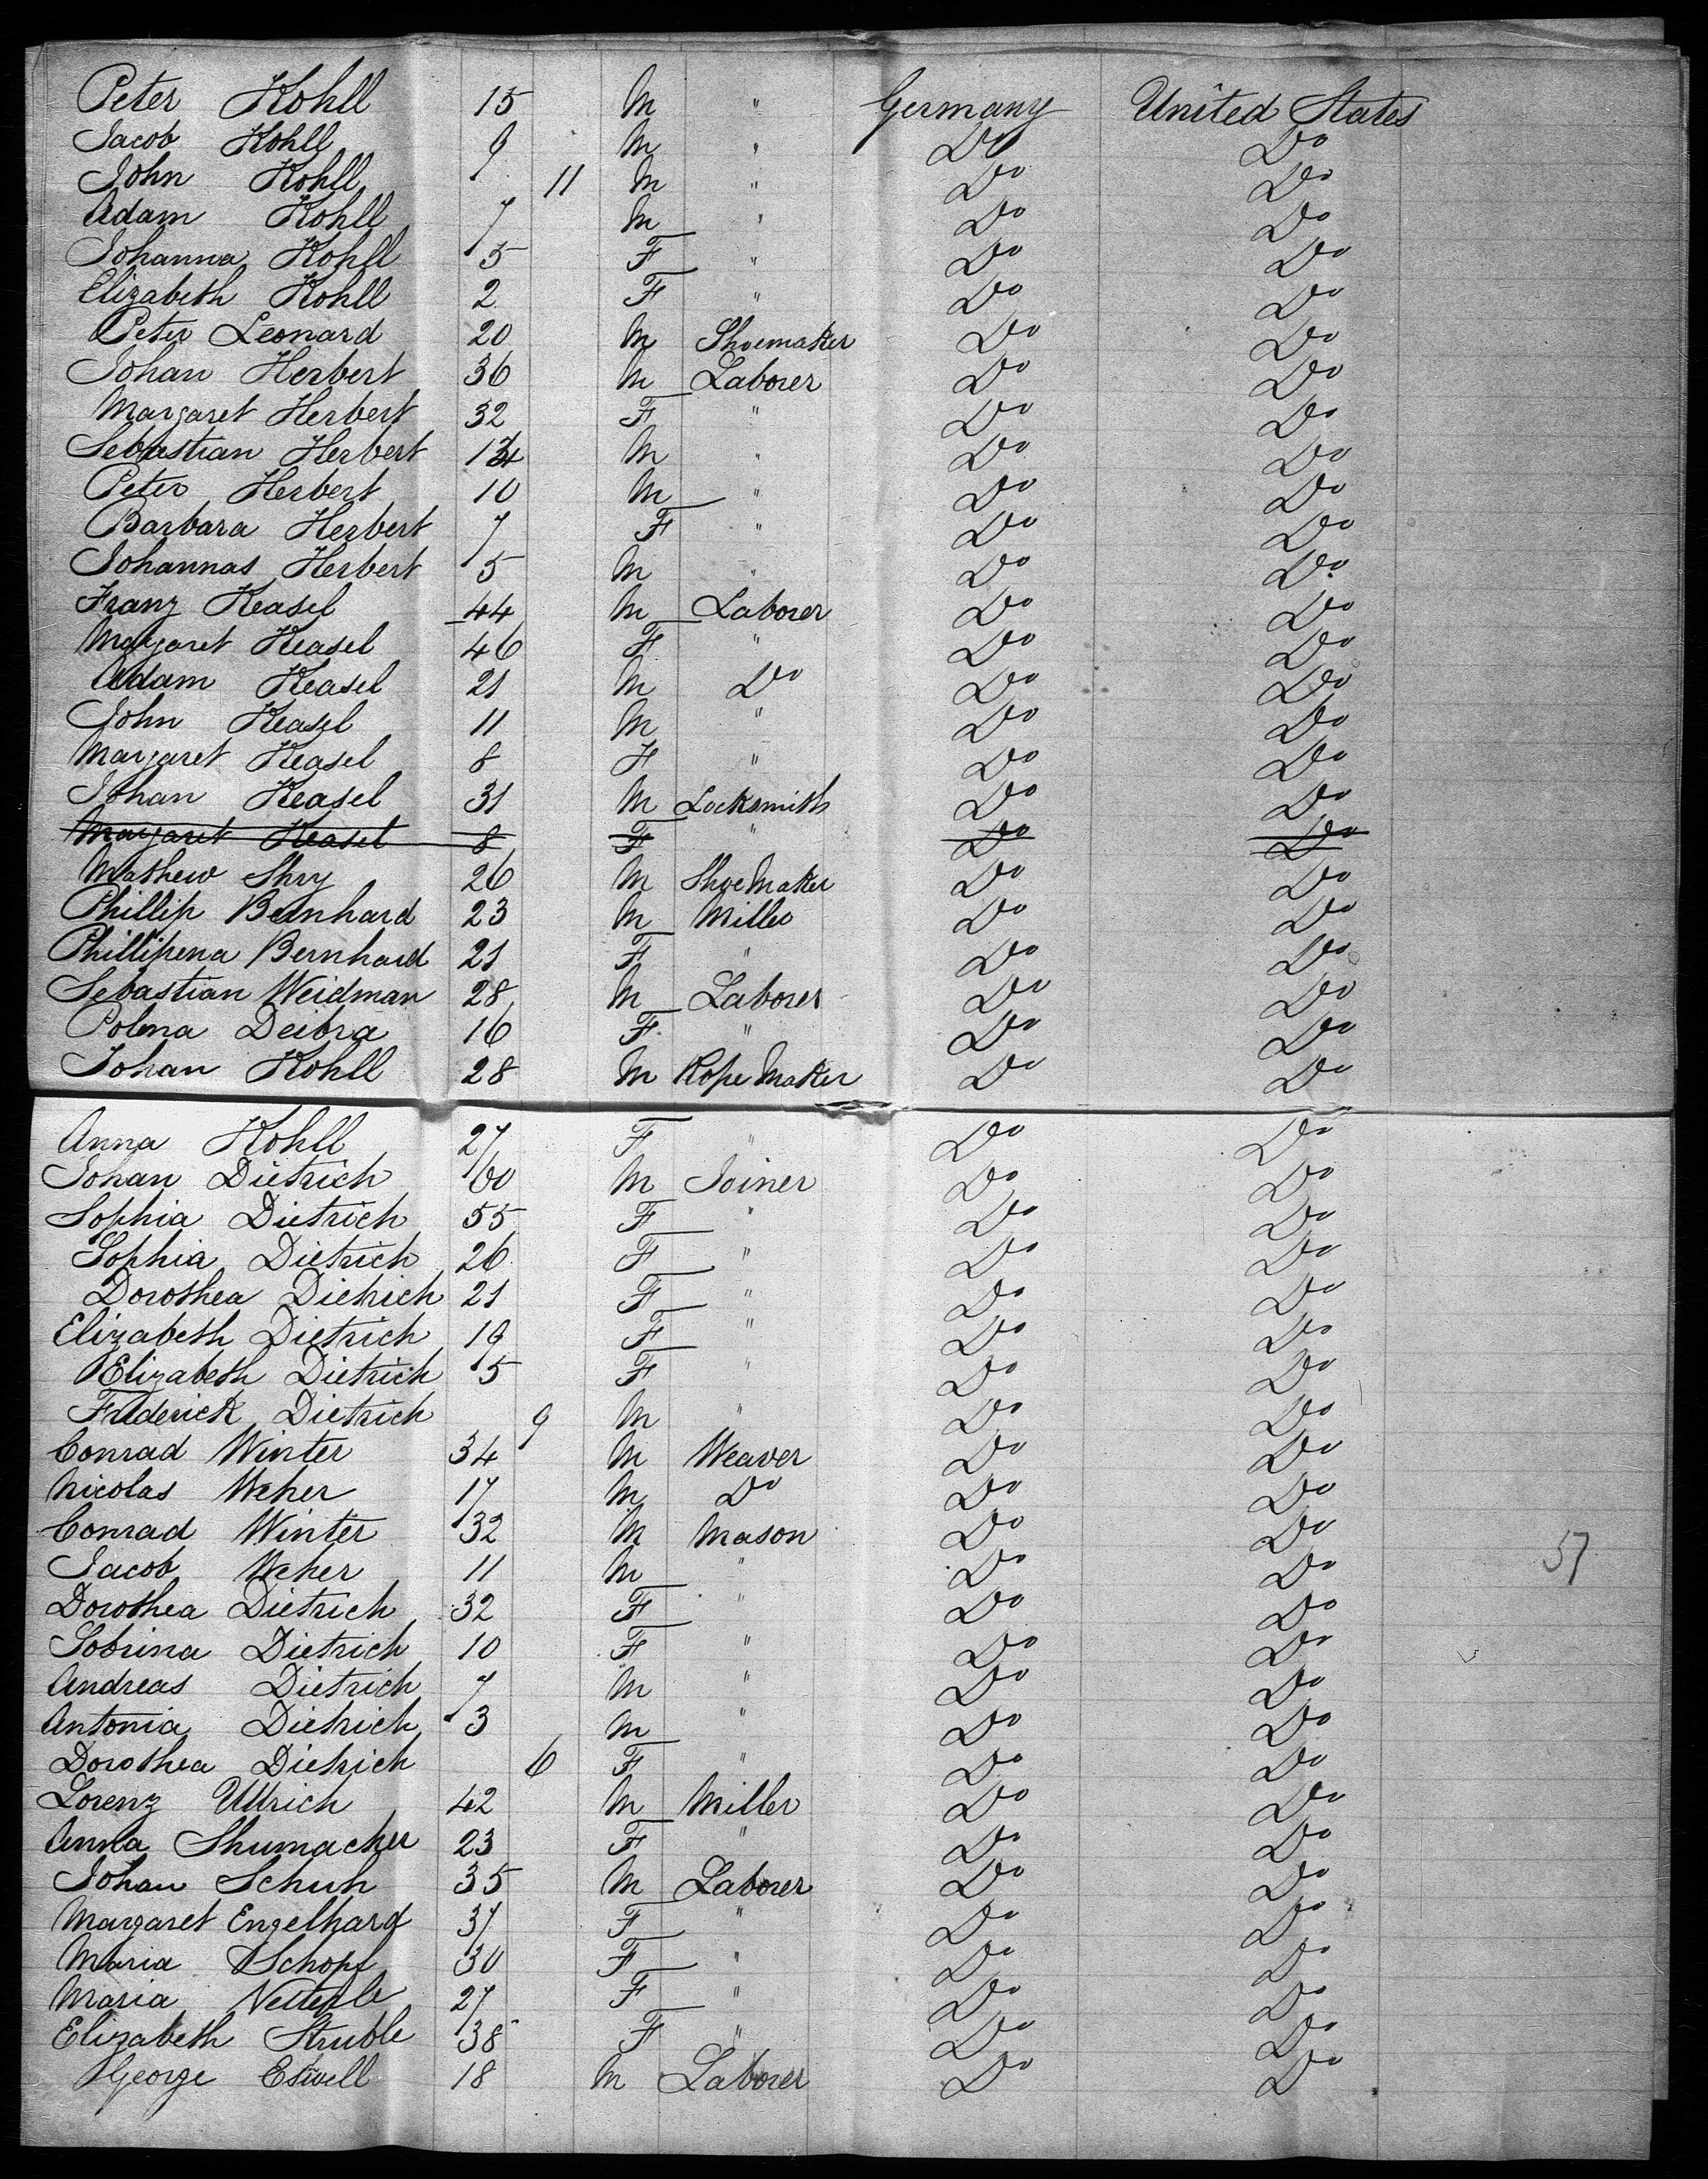 Peter Kohll 15 M " Germany United States
Jacob Kohll 9 M " Do Do
John Kohll 11 M " Do Do
Adam Kohll 7 M " Do Do
Johanna Kohll 5 F " Do Do
Elizabeth Kohll 2 F " Do Do
Peter Leonard 20 M Shoemaker Do Do
Johan Herbert 36 M Laborer Do Do
Margaret Herbert 32 F " Do Do
Sebastian Herbert M " Do Do
Peter Herbert 10 M " Do Do
Barbara Herbert 7 F " Do Do
Johannas Herbert 5 M " Do Do
Franz Keasel 44 M Laborer Do Do
Margaret Keasel 46 F " Do Do
Adam Keasel 21 M Do Do Do
John Keasel 11 M " Do Do
Margaret Keasel 8 F " Do Do
Johan Keasel 31 M Locksmith Do Do
Margaret Keasel 8 F " Do Do
Mathew Shry 26 M Shoe Maker Do Do
Phillip Bernhard 23 M Miller Do Do
Phillipena Bernhard 21 F " Do Do
Sebastian Weidman 28 M Laborer Do Do
Polena Deibra 16 F " Do Do
Johan Kohll 28 M Rope Maker Do Do
Anna Kohll 27 F " Do Do
Johan Dietrich 60 M Joiner Do Do
Sophia Dietrich 55 F " Do Do
Sophia Dietrich 26 F " Do Do
Dorothea Dietrich 21 F " Do Do
Elizabeth Dietrich 19 F " Do Do
Elizabeth Dietrich 5 F " Do Do
Frederick Dietrich 9 M " Do Do
Conrad Winter 34 M Weaver Do Do
Nicolas Weher 17 M Do Do Do
Conrad Winter 32 M Mason Do Do 57
Jacob Weher 11 M " Do Do
Dorothea Dietrich 32 F " Do Do
Sobrina Dietrich 10 F " Do Do
Andreas Dietrich 7 M " Do Do
Antonia Dietrich 3 M " Do Do
Dorothea Dietrich 6 F " Do Do
Lorenz Ullrich 42 M Miller Do Do
Anna Shumacher 23 F " Do Do
Johan Schuh 35 M Laborer Do Do
Margaret Engelhard 37 F " Do Do
Maria Schopf 30 F " Do Do
Maria 27 F " Do Do
Elizabeth Struble 38 F " Do Do
George Eswell 18 M Laborer Do Do